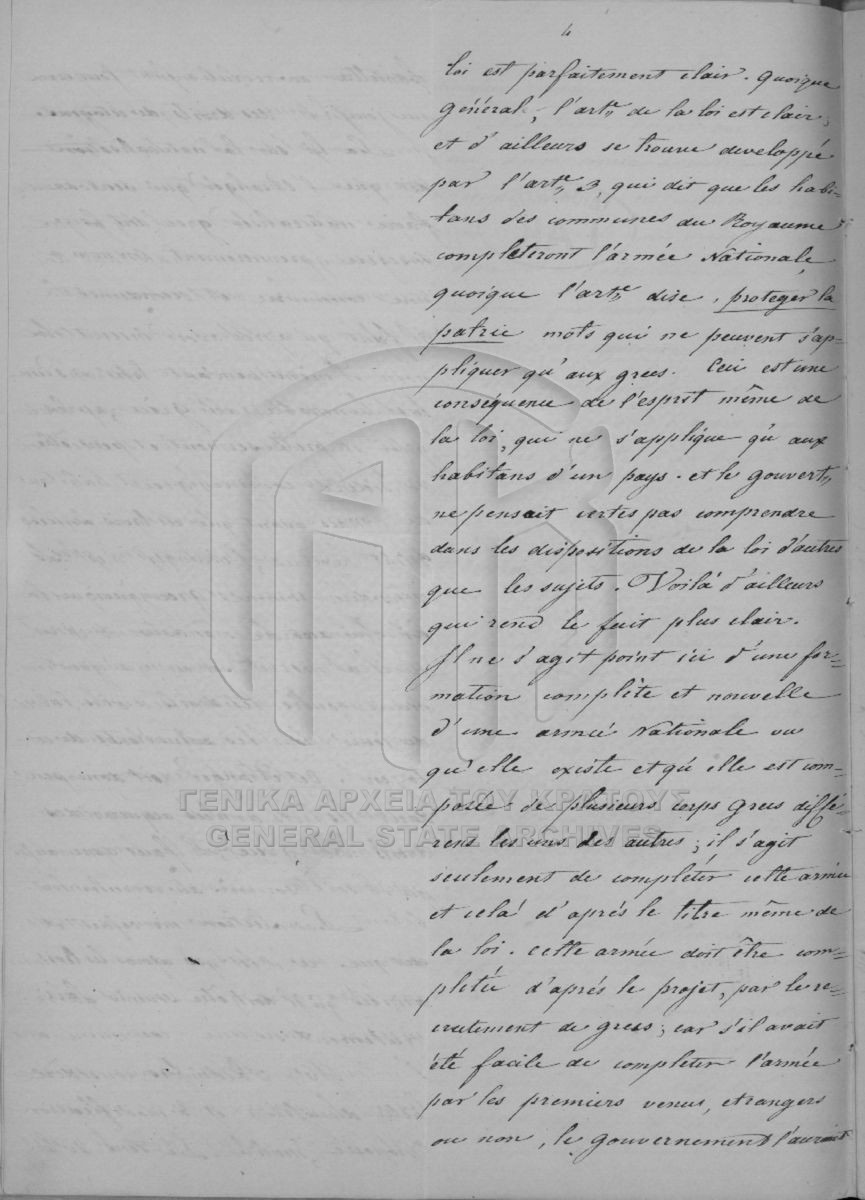 4
loi est parfaitement clair. Quoique
général, l'artᵉ de la loi est clair,
et d'ailleurs se trouve developpé
par l'artᵉ 3, qui dit que les habi-
tans des communes du Royaume
completeront l'armée Nationale,
quoique l'artᵉ dise, proteger la
patrie mots qui ne peuvent s'ap-
pliquer qu'aux grecs. Ceci est une
conséquence de l'esprit même de
la loi, qui ne s'applique qu'aux
habitans d'un pays. et le gouvertⁿ
ne pensait certes pas comprendre
dans les dispositions de la loi d'autres
que les sujets. Voilà d'ailleurs
qui rend le fait plus clair.
Il ne s'agit point ici d'une for-
mation complète et nouvelle
d'une armée Nationale vu
qu'elle existe et qu'elle est com-
posée de plusieurs corps Grecs diffé-
rens les uns des autres; il s'agit
seulement de completér cette armée
et celà d'aprés le titre même de
la loi. cette armée doit être com-
pletée d'aprés le projet, par le re-
crutement de grecs; car s'il avait
été facile de completer l'armée
par les premiers venus, etrangers
ou non, le gouvernement l'aurait
ΓΕΝΙΚΑ ΑΡΧΕΙΑ ΤΟΥ ΚΡΑΤΟΥΣ
GENERAL STATE ARCHIVES